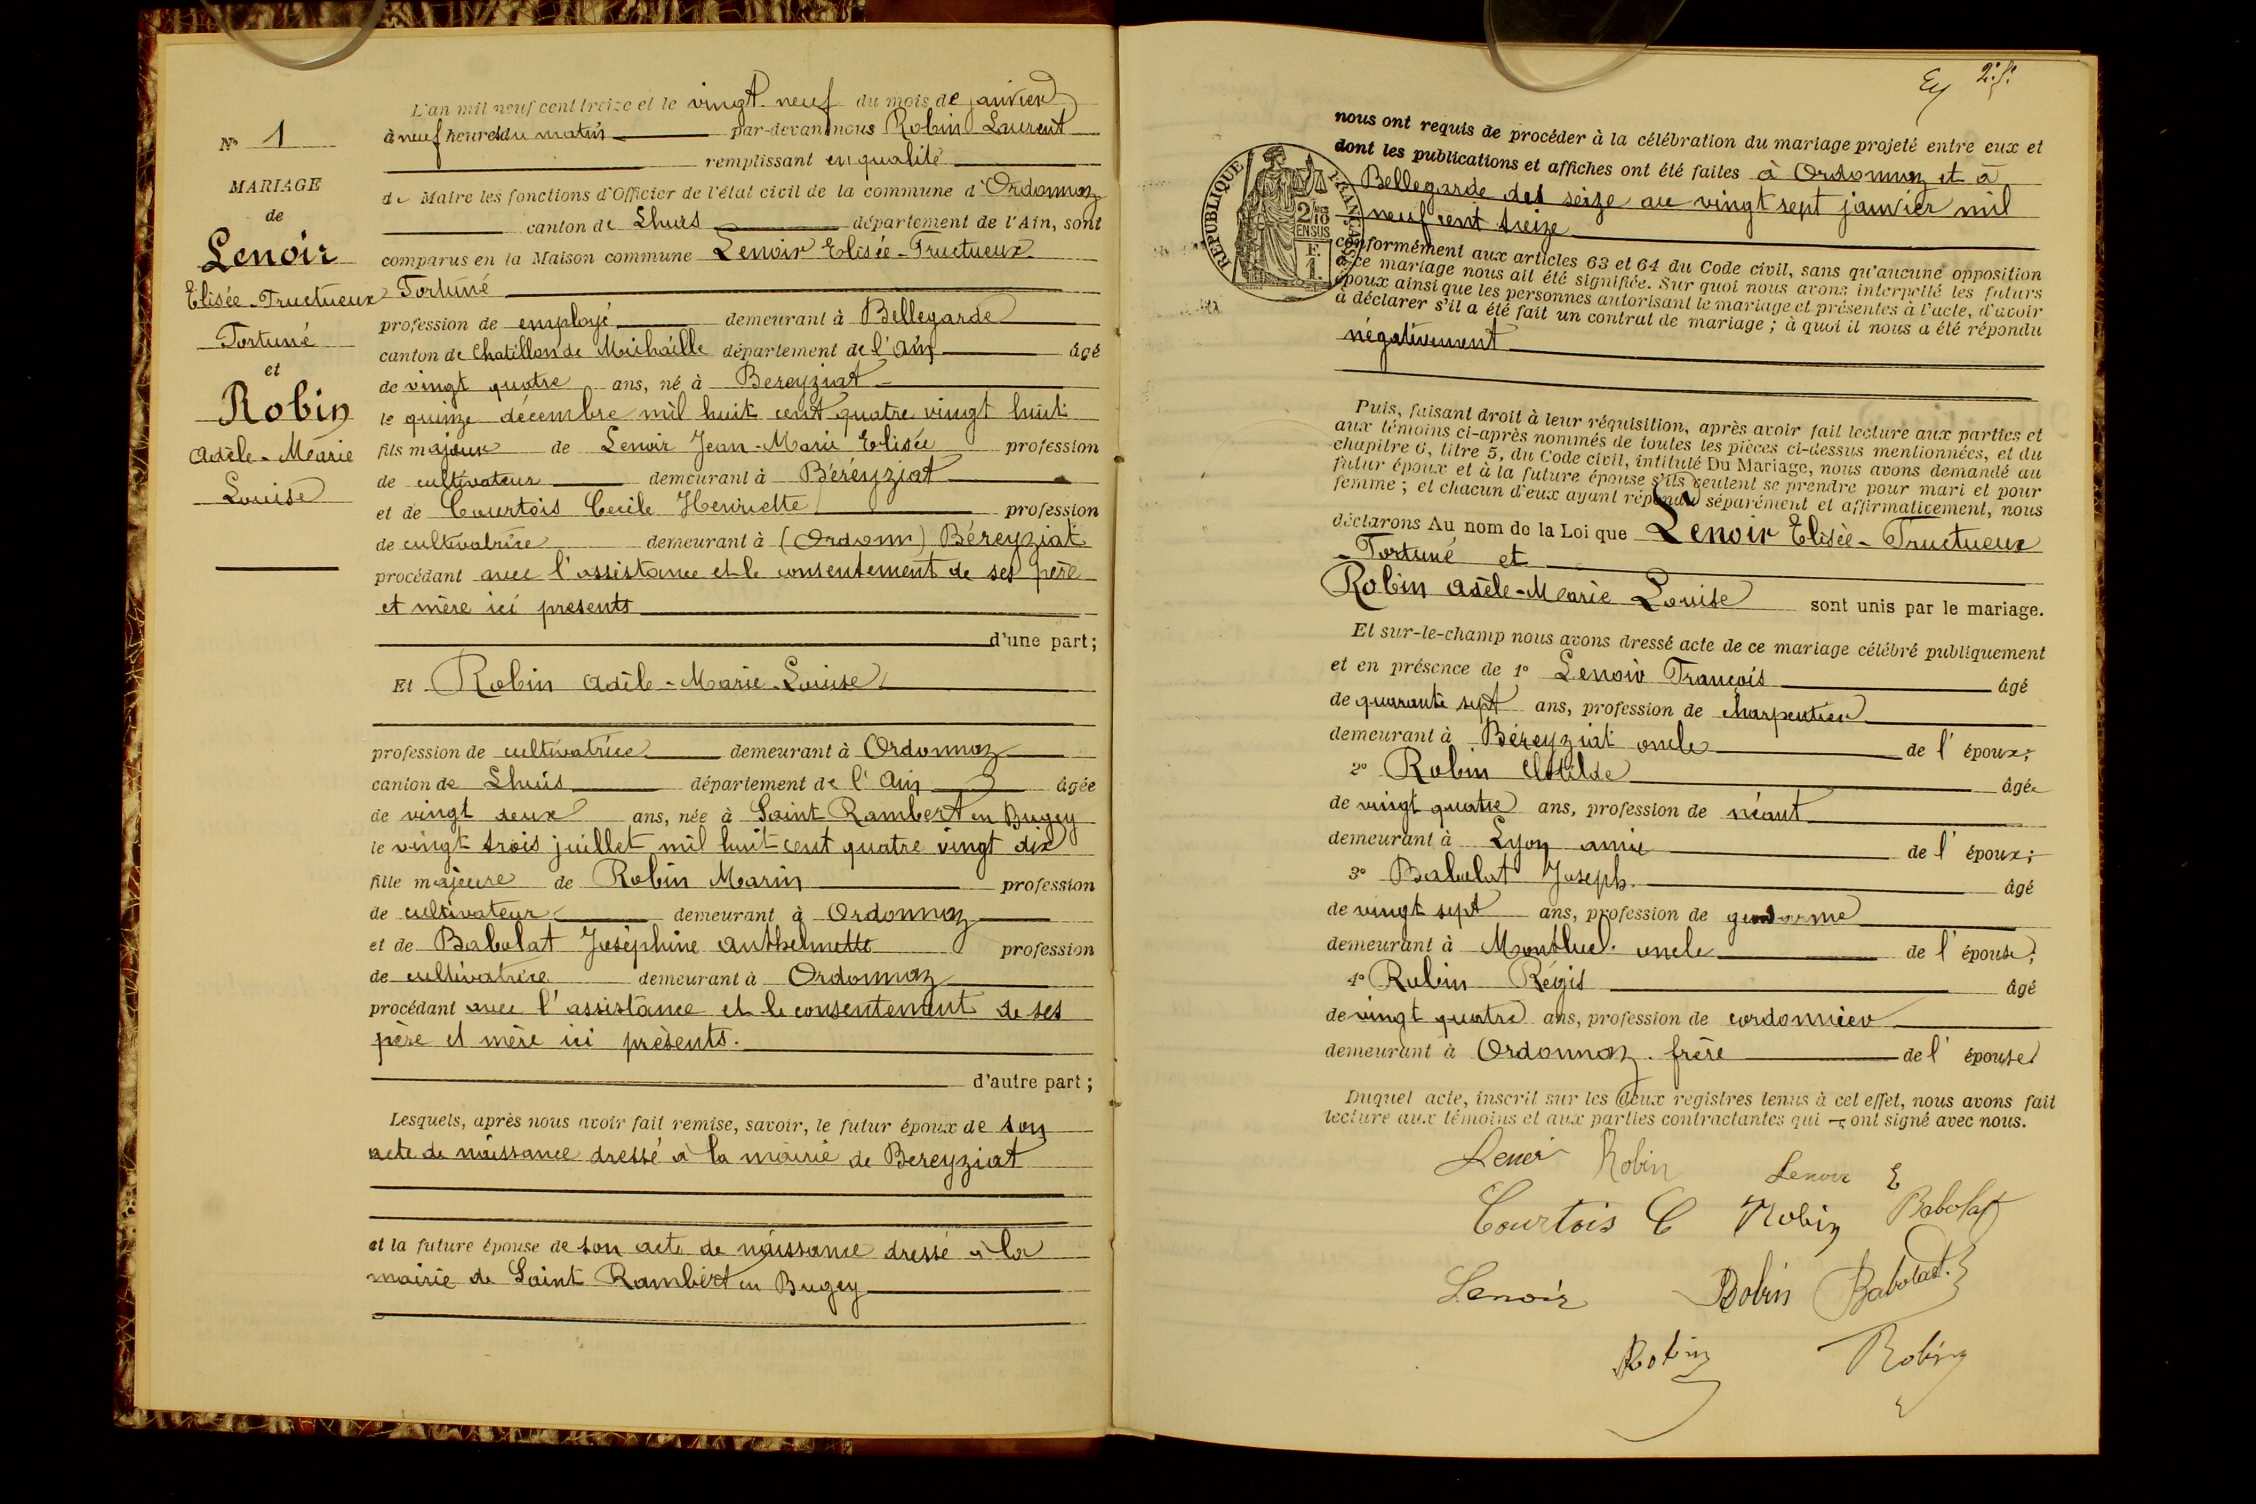 L'an mil neuf cent treize et le vingt neuf du mois de janvier
à neuf heures du matin par-devant nous Robin Laurent
remplissant en qualité
de Maire les fonctions d'Officier de l'état civil de la commune d'Ordonnaz
canton de Lhuis département de l'Ain, sont
comparus en la Maison commune Lenoir Elisée-Fructueux
Fortuné
profession de employé demeurant à Bellegarde
canton de Chatillon de Michaille département de l'Ain âgé
de vingt quatre ans, né à Bereyziat
le quinze décembre mil huit cent quatre vingt huit
fils majeur de Lenoir Jean-Marie Elisée profession
de cultivateur demeurant à Béréyziat
et de Courtois Cecile Henriette profession
de cultivatrice demeurant à (Ordonn) Béreyziat
procédant avec l'assistance et le consentement de ses père
et mère ici presents
d'une part;
Et Robin Adèle-Marie-Louise
profession de cultivatrice demeurant à Ordonnaz
canton de Lhuis département de l'Ain âgée
de vingt deux ans, née à Saint Rambert en Bugey
le vingt trois juillet mil huit cent quatre vingt dix
fille majeure de Robin Marin profession
de cultivateur demeurant à Ordonnaz
et de Babolat Joséphine Anthelmette profession
de cultivatrice demeurant à Ordonnaz
procédant avec l'assistance et le consentement de ses
père et mère ici présents.
d'autre part;
Lesquels, après nous avoir fait remise, savoir, le futur époux de son
acte de naissance dressé à la mairie de Bereyziat
et la future épouse de son acte de naissance dressé à la
mairie de Saint Rambert en Bugey
N° 1
MARIAGE
de
Lenoir
Elisée-Fructueux
Fortuné
et
Robin
Adèle-Marie
Louise
2.f.
nous ont requis de procéder à la célébration du mariage projeté entre eux et
dont les publications et affiches ont été faites à Ordonnaz et à
Bellegarde des seize au vingt sept janvier mil
neuf cent treize
conformément aux articles 63 et 64 du Code civil, sans qu'aucune opposition
à ce mariage nous ait été signifiée. Sur quoi nous avons interpellé les futurs
époux ainsi que les personnes autorisant le mariage et présentes à l'acte, d'avoir
à déclarer s'il a été fait un contrat de mariage; à quoi il nous a été répondu
négativement
RÉPUBLIQUE FRANÇAISE
2/10
EN SUS
F.
1.
Puis, faisant droit à leur réquisition, après avoir fait lecture aux parties et
aux témoins ci-après nommés de toutes les pièces ci-dessus mentionnées, et du
chapitre 6, titre 5, du Code civil, intitulé Du Mariage, nous avons demandé au
futur époux et à la future épouse s'ils veulent se prendre pour mari et pour
femme; et chacun d'eux ayant répondu séparément et affirmativement, nous
déclarons Au nom de la Loi que Lenoir Elisée-Fructueux
-Fortuné et
Robin Adèle-Marie Louise sont unis par le mariage.
Et sur-le-champ nous avons dressé acte de ce mariage célébré publiquement
et en présence de 1° Lenoir François âgé
de quarante sept ans, profession de charpentier
demeurant à Béreyziat oncle de l'époux;
2° Robin Clotilde âgée
de vingt quatre ans, profession de néant
demeurant à Lyon amie de l'époux;
3° Babolat Joseph. âgé
de vingt sept ans, profession de gendarme
demeurant à Montluel. oncle de l'épouse;
4° Robin Régis âgé
de vingt quatre ans, profession de cordonnier
demeurant à Ordonnaz. frère de l'épouse
Duquel acte, inscrit sur les deux registres tenus à cet effet, nous avons fait
lecture aux témoins et aux parties contractantes qui ont signé avec nous.
Lenoir Robin Lenoir E
Courtois C Robin Babolat
Lenoir Robin Babolat
Robin Robin